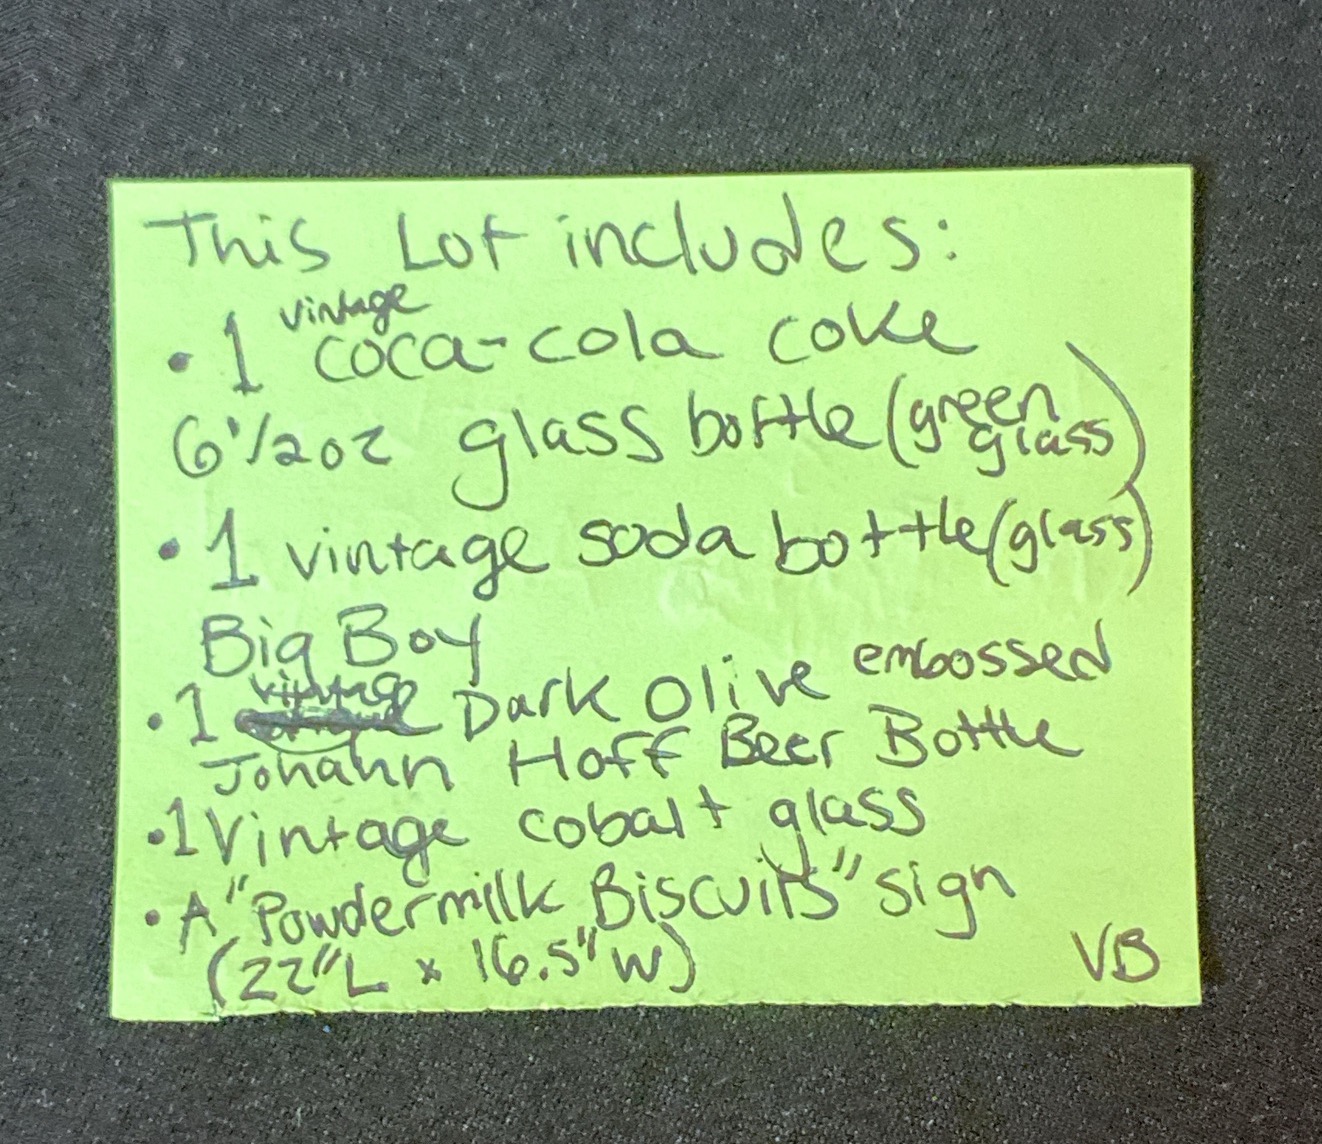 This Lot includes:
• 1 vintage coca-cola coke
6 1/2 oz glass bottle (green glass)
• 1 vintage soda bottle (glass)
Big Boy
• 1 vintage Dark Olive embossed
Johann Hoff Beer Bottle
• 1 Vintage cobalt glass
• A "Powdermilk Biscuits" sign
(22"L x 16.5"W)
VB